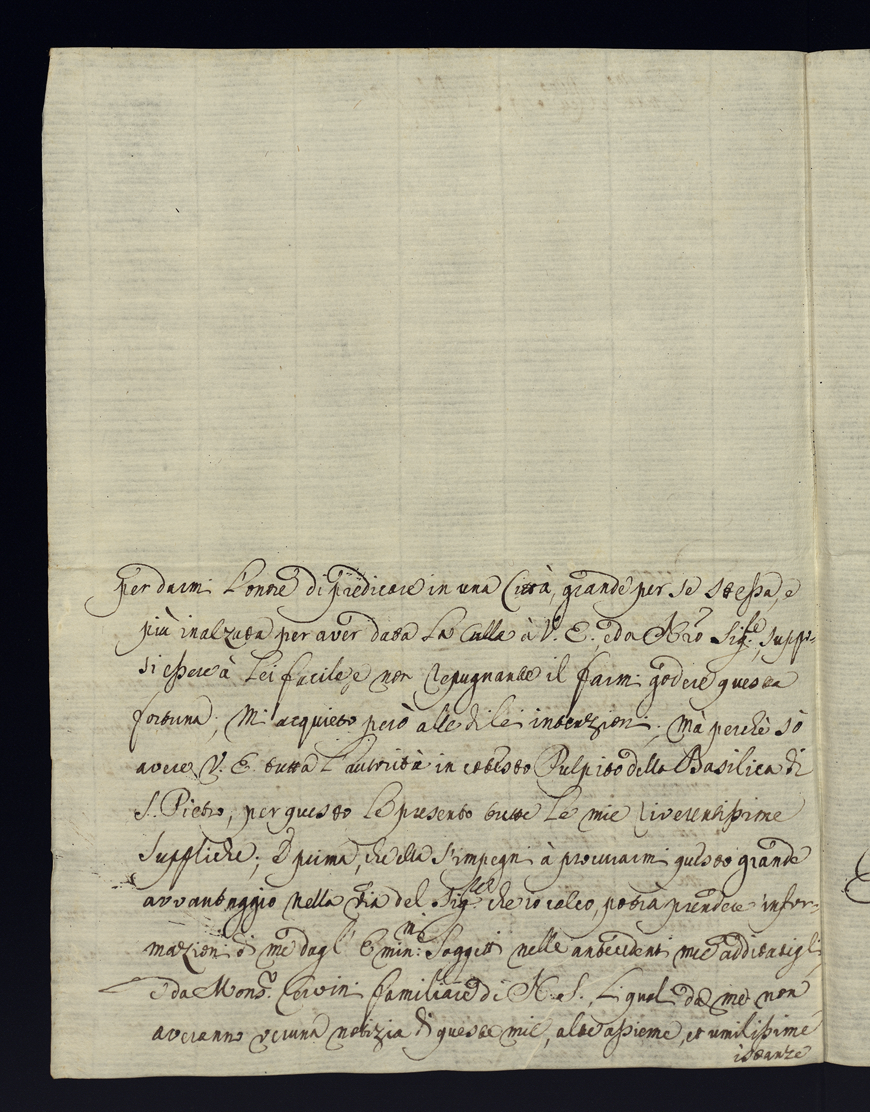 per darmi l'onore di predicare in una Città, grande per se stessa, e
più inalzata per aver data la Culla à V. E., e da N̄ro Sig.re, suppo-
si essere à Lei facile, e non repugnante il farmi godere questa
fortuna; Mi acquieto però alle di lei intenzioni. Mà perchè sò
avere V. E. tutta l'autorità in cotesto Pulpito della Basilica di
S. Pietro, per questo le presento tutte le mie riverentissime
suppliche; E prima, che ella s'impegni à procurarmi questo grande
avvantaggio nella via del Sig.re che io calco, potrà prendere infor-
mazioni di me dagl' Emin.mi Soggetti nelle antecedenti mie additatigli,
e da Mons.r Cervini familiare di N. S. li quali da me non
averanno veruna notizia di queste mie, alteassieme, et umilissime
istanze